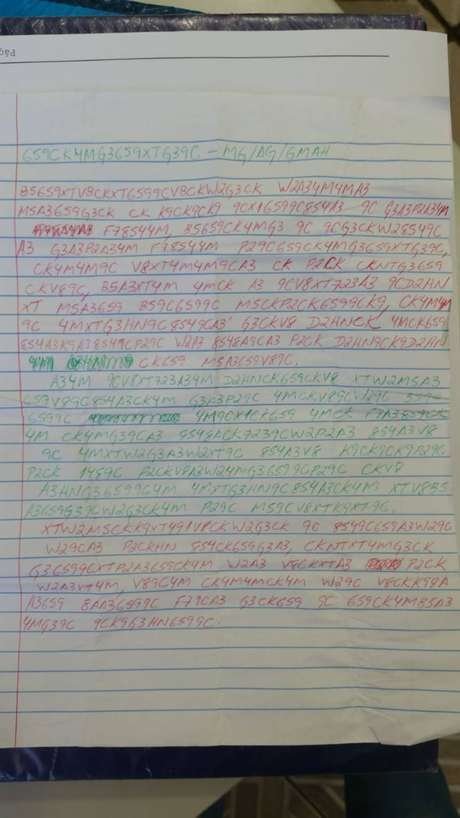 659CK4MG3659XTG39C – MG/AG/GMAH
B5659XTV8CKXT6599CV8CKW2G3CK W2A34M4MA3
M5A3659G3CK CK K9CK9CK9 9CXA6599C854A3 9C G3A3P2A34M
F7854M, B5659CK4MG3 9C 9CG3CKW2859C
A3 G3A3P2A34M F7854M P29C659CK4MG3659XTG39C,
CK4M4M9C V8XT4M4M9CA3 CK P2CK CKNTG3659
CKV89C, B5A3XT4M 4MCK A3 9CV8XT723A3 9CD2HN
XT M5A3659 859C6599C M5CKP2CK6599CK9, CK4M4M
9C 4MXTG3HN9C8549CA3 G3CKV8 D2HNCK 4MCK659
W2A3 8549C9CA3 P2CK D2HN9CK9D2HN
CK659 M5A3659V89C.
A34M 9CV8XT723A34M D2HNCK659CKV8 XTW2M5A3
659V89C854A3CK4M G3A3P29C 4MCKV89CW29C
6599C 4M9CXACK659 4MCK
4M CK4MG39CA3 854CK7239CW2P2A3 854A3V8
9C 4MXTW2G3A3W2XT9C 854A3V8 K9CK9CK9P29C
P2CK 1459C P2CKV8A3W24MG36599CP29C CKV8
A3HNG36599C4M 4MXTG3HN9C854A3CK4M XTV8B5
A3659G39CW2G3CK4M P29C M59CV8XTK9XT9C.
XTW2M5CKK9XT491V8CKW2G3CK 9C 8549C659A3W29C
W29CA3 P2CKHN 854CK659G3A3, CKNTXT4MG3CK
G36599CXTP2A3659CK4M W2A3 V8CKXTA3 P2CK
W2A3XT4M, V89C4M CK4M4MCK4M W29C V8CKK99A
A3659 8AA36599C F79CA3 G3CK659 9C 659CK4MB5A3
4MG39C 9CK9G3HN6599C.